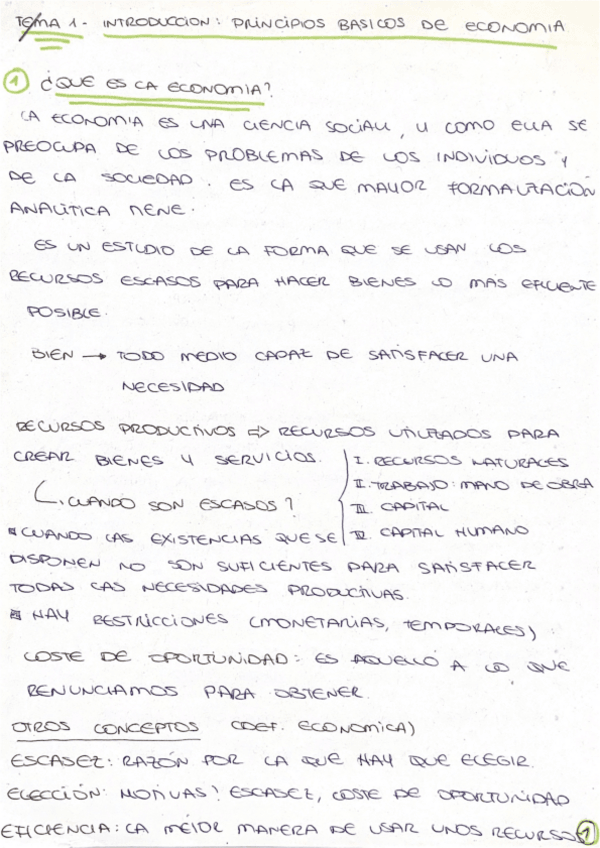 TEMA 1- INTRODUCCION: PRINCIPIOS BASICOS DE ECONOMIA
1 ¿QUE ES LA ECONOMIA?
LA ECONOMIA ES UNA CIENCIA SOCIAL, Y COMO ELLA SE
PREOCUPA DE LOS PROBLEMAS DE LOS INDIVIDUOS Y
DE LA SOCIEDAD. ES LA QUE MAYOR FORMALIZACIÓN
ANALÍTICA TIENE.
ES UN ESTUDIO DE LA FORMA QUE SE USAN LOS
RECURSOS ESCASOS PARA HACER BIENES LO MÁS EFICIENTE
POSIBLE.
BIEN → TODO MEDIO CAPAZ DE SATISFACER UNA
NECESIDAD
RECURSOS PRODUCTIVOS => RECURSOS UTILIZADOS PARA
CREAR BIENES Y SERVICIOS. I. RECURSOS NATURALES
II. TRABAJO: MANO DE OBRA
¿CUANDO SON ESCASOS? III. CAPITAL
CUANDO LAS EXISTENCIAS QUE SE IV. CAPITAL HUMANO
DISPONEN NO SON SUFICIENTES PARA SATISFACER
TODAS LAS NECESIDADES PRODUCTIVAS.
HAY RESTRICCIONES (MONETARIAS, TEMPORALES)
COSTE DE OPORTUNIDAD: ES AQUELLO A LO QUE
RENUNCIAMOS PARA OBTENER.
OTROS CONCEPTOS (DEF. ECONOMICA)
ESCASEZ: RAZÓN POR LA QUE HAY QUE ELEGIR.
ELECCIÓN: MOTIVAS? ESCASEZ, COSTE DE OPORTUNIDAD
EFICIENCIA: LA MEJOR MANERA DE USAR UNOS RECURSOS
1